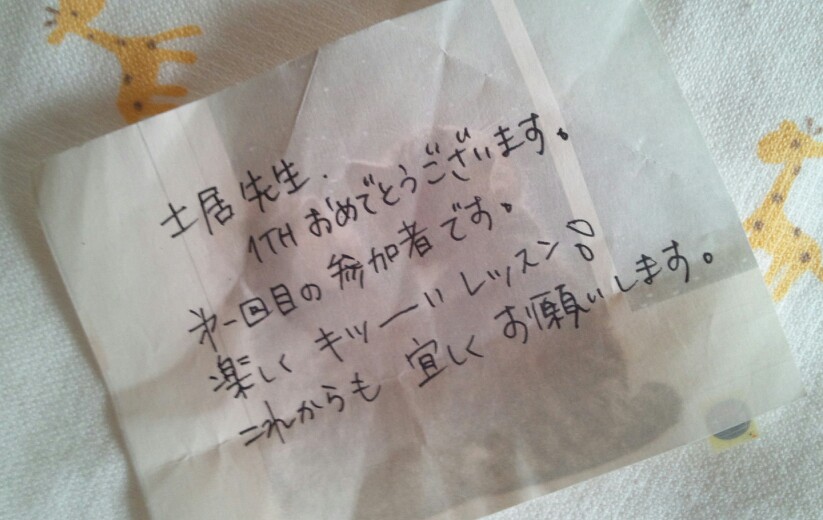 土居先生.
1TH おめでとうございます。
第一回目の 参加者です。
楽しく キツーい レッスン!!
これからも 宜しく お願いします。